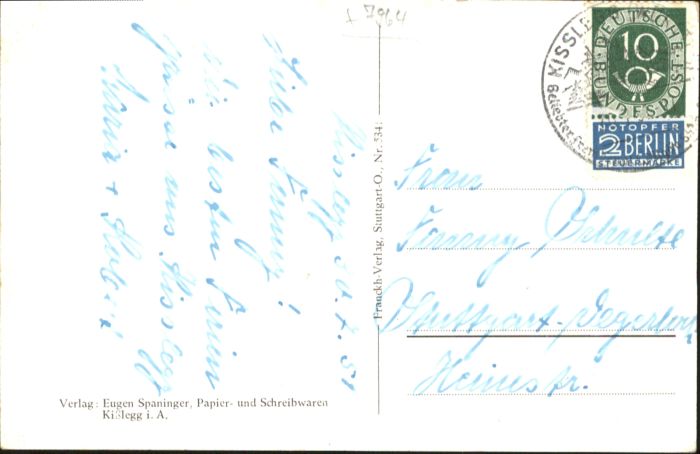 + 7964
Kisslegg 30.7.51
Liebe Fanny!
die besten
Grüsse aus Kisslegg
Maria +
Franckh-Verlag, Stuttgart-O., Nr. 534
KISSLE
Beliebter
DEUTSCHE
BUNDESPOST
10
NOTOPFER
2 BERLIN
STEUERMARKE
Frau
Fanny Schulte
Stuttgart-Degerloch
Heinestr.
Verlag: Eugen Spaninger, Papier- und Schreibwaren
Kißlegg i. A.